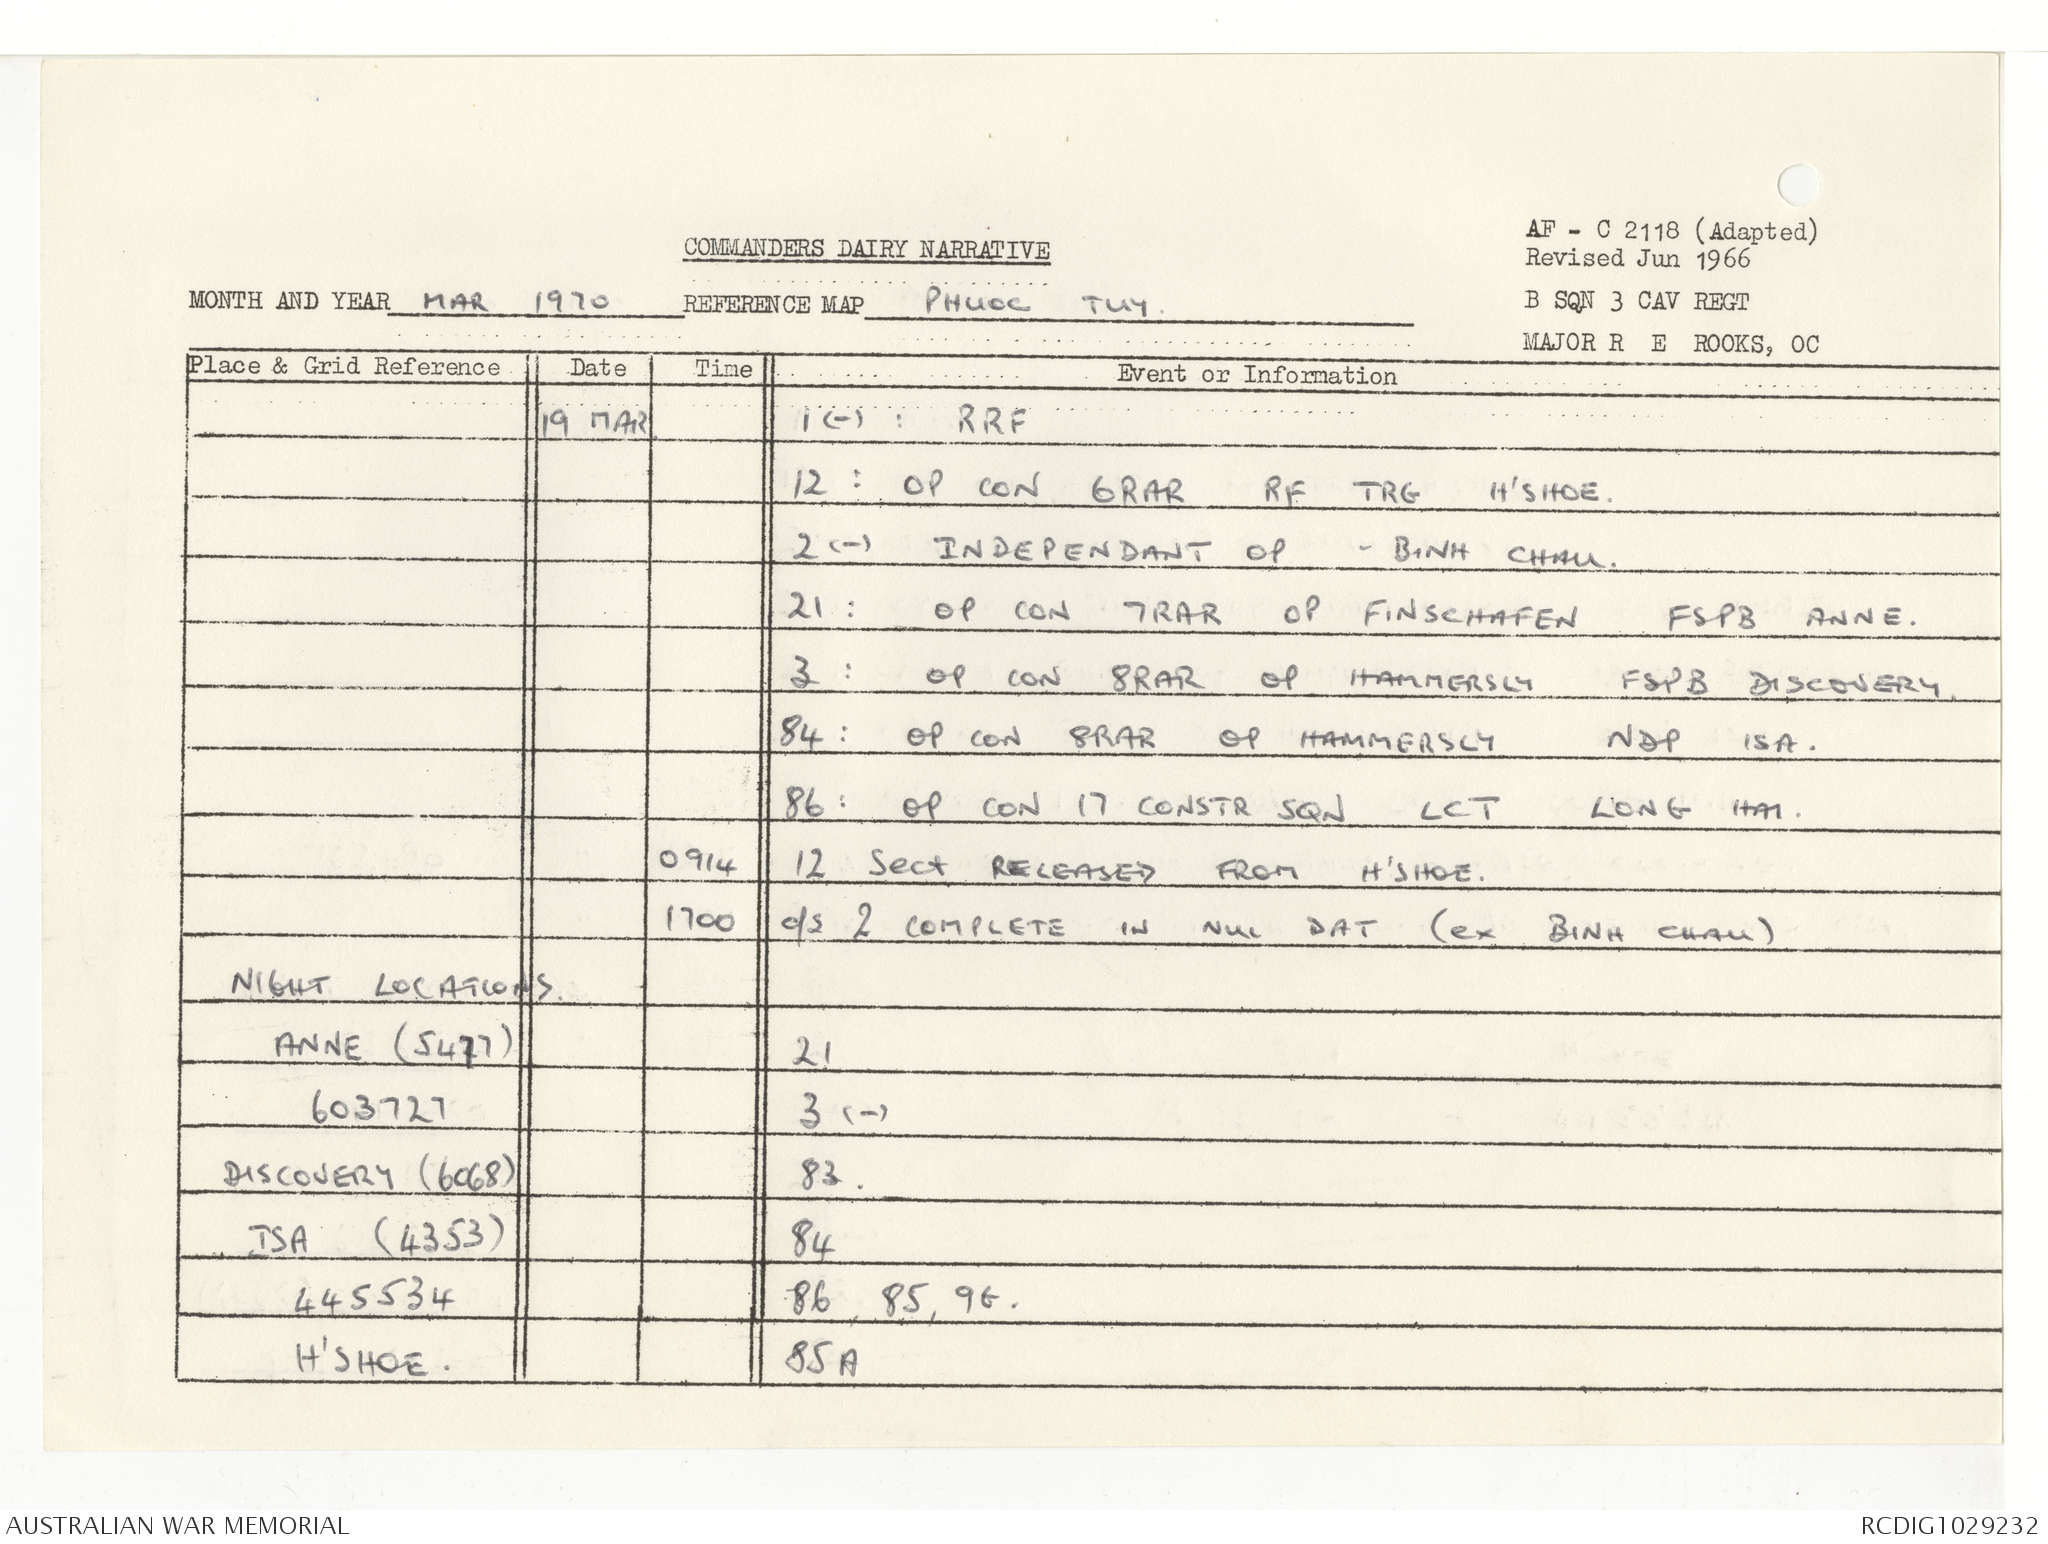 COMMANDERS DAIRY NARRATIVE
AF - C 2118 (Adapted)
Revised Jun 1966
B SQN 3 CAV REGT
MAJOR R E ROOKS, OC
MONTH AND YEAR MAR 1970 REFERENCE MAP PHUOC TUY.
Place & Grid Reference Date Time Event or Information
19 MAR 1(-) : RRF
12 : OP CON 6RAR RF TRG H'SHOE.
2(-) INDEPENDANT OP - BINH CHAU.
21 : OP CON 7RAR OP FINSCHAFEN FSPB ANNE.
3 : OP CON 8RAR OP HAMMERSLY FSPB DISCOVERY.
84 : OP CON 8RAR OP HAMMERSLY NDP ISA.
86 : OP CON 17 CONSTR SQN LCT LONG HAI.
0914 12 Sect RELEASED FROM H'SHOE.
1700 c/s 2 COMPLETE IN NUI DAT (ex BINH CHAU)
NIGHT LOCATIONS.
ANNE (5477) 21
603727 3 (-)
DISCOVERY (6068) 83.
ISA (4353) 84
445534 86, 85, 9G.
H'SHOE. 85A
AUSTRALIAN WAR MEMORIAL RCDIG1029232